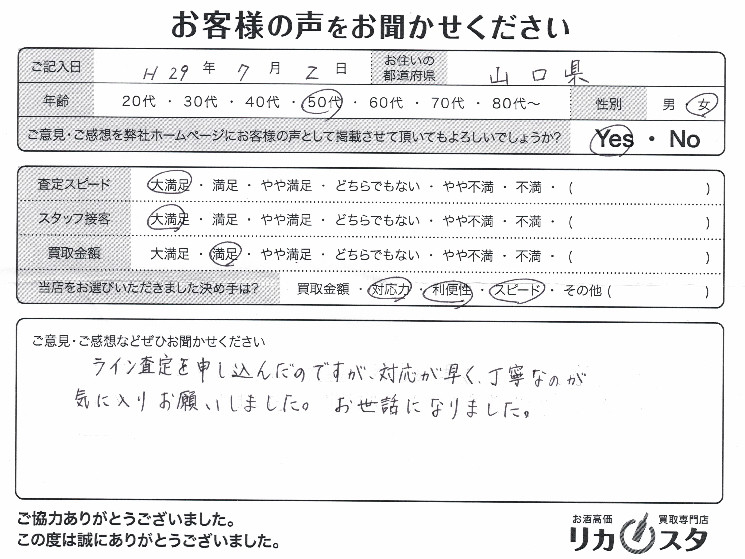 お客様の声をお聞かせください
ご記入日 H 29 年 7 月 2 日 お住いの都道府県 山口県
年齢 20代 ・ 30代 ・ 40代 ・ 50代 ・ 60代 ・ 70代 ・ 80代〜 性別 男 ・ 女
ご意見・ご感想を弊社ホームページにお客様の声として掲載させて頂いてもよろしいでしょうか? Yes ・ No
査定スピード 大満足 ・ 満足 ・ やや満足 ・ どちらでもない ・ やや不満 ・ 不満 ・ ( )
スタッフ接客 大満足 ・ 満足 ・ やや満足 ・ どちらでもない ・ やや不満 ・ 不満 ・ ( )
買取金額 大満足 ・ 満足 ・ やや満足 ・ どちらでもない ・ やや不満 ・ 不満 ・ ( )
当店をお選びいただきました決め手は? 買取金額 ・ 対応力 ・ 利便性 ・ スピード ・ その他 ( )
ご意見・ご感想などぜひお聞かせください
ライン査定を申し込んだのですが、対応が早く、丁寧なのが
気に入りお願いしました。 お世話になりました。
ご協力ありがとうございました。
この度は誠にありがとうございました。
お酒高価 買取専門店
リカスタ